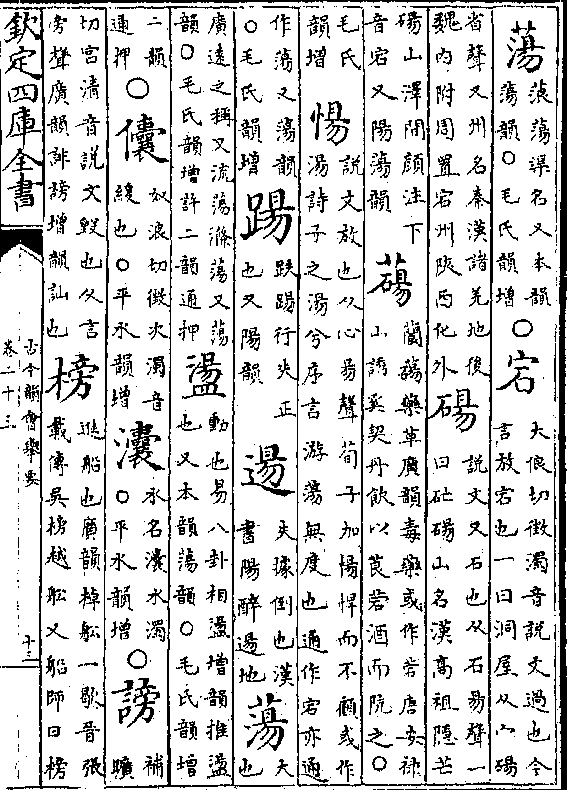 蕩浪蕩渠名又本韻
蕩韻○毛氏韻增
○宕大浪切徵濁音說文過也今
言放宕也一曰洞屋从宀碭
省聲又州名秦漢諸羌地後
魏内附周置宕州陝西化外
碭說文文石也从石昜聲一
曰芒碭山名漢高祖隱芒
碭山澤間顔注下
音宕又陽蕩韻
䕞蘭䕞藥草廣韻毒藥或作菪唐安祿
山誘奚契丹飲以莨菪酒而阬之○
毛氏
韻增
愓說文放也从心昜聲荀子加愓悍而不順或作
湯詩子之湯兮序言游蕩無度也通作宕亦通
作蕩又蕩韻
○毛氏韻增
踼跌踼行失正
也又陽韻
逿失據倒也漢
書陽醉逿地
蕩大
也
廣遠之稱又流蕩滌蕩又蕩
韻○毛氏韻增許二韻通押
盪動也易八卦相盪增韻推盪
也又本韻蕩韻○毛氏韻增
二韻
通押
○儾奴浪切徵次濁音
緩也○平水韻增
灢水名灢水濁
○平水韻增
○謗補
曠
切宮清音說文毀也从言
旁聲廣韻誹謗增韻訕也
榜進船也廣韻棹船一歇晉張
載傳吳榜越舩又船師曰榜
欽定四庫全書
古今韻會舉要
卷二十三
十三